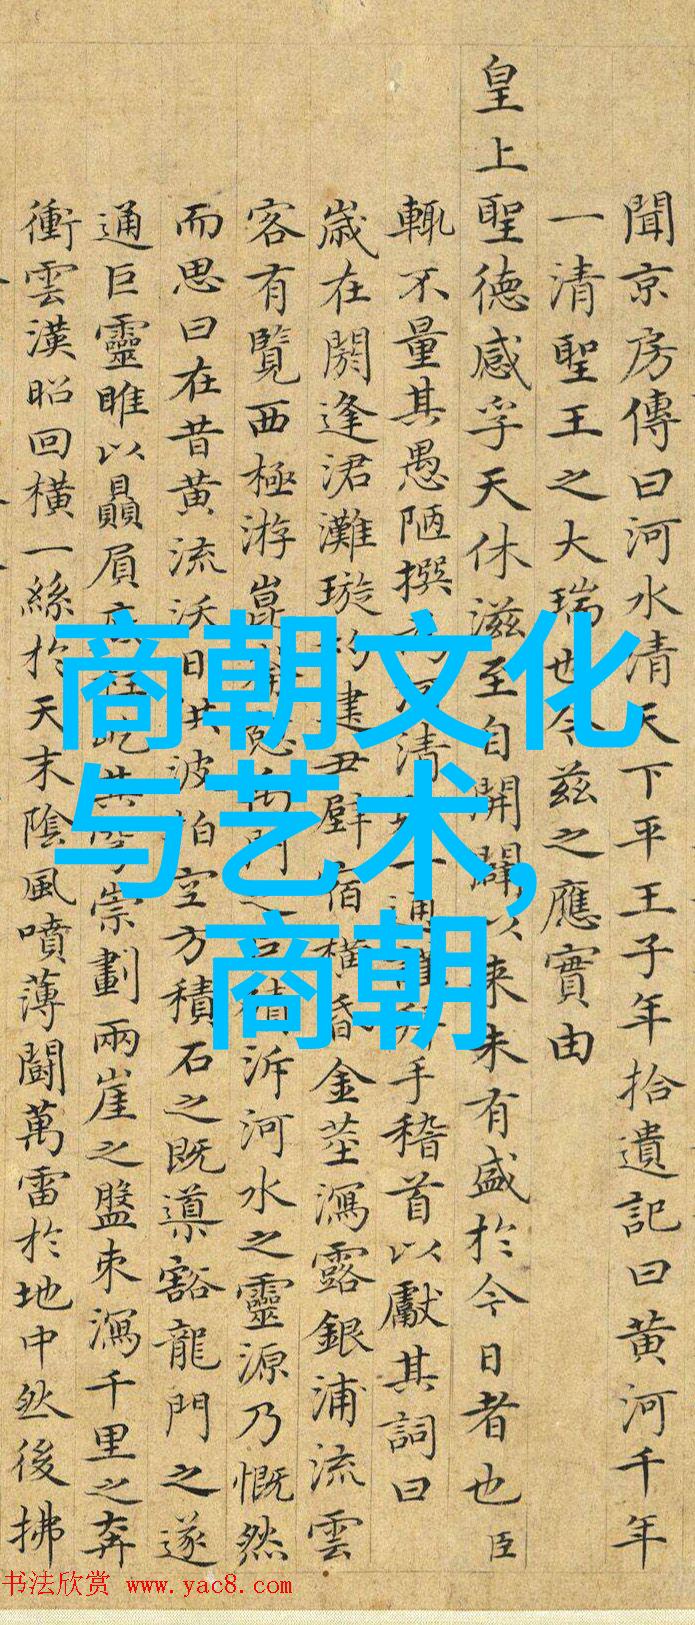 聞京房傳曰河水清天下平王子年拾遺記曰黃河千年
一清聖王之大瑞也今茲之應實由
皇上聖德感孚天休滋至自開闢以來未有盛於今日者也臣
輒不量其愚陋撰為河清 一通 手稽首以獻其詞曰
歲在閼逢涒灘璇 建丑壁宿橫昏金莖瀉露銀浦流雲
客有覽西極游崑 河水之靈源乃慨然
而思曰在昔黃流沃日洪波拍空方積石之既導豁龍門之遂
通巨靈睢以贔屓 崇劃兩崖之盤束瀉千里之奔
衝雲漢昭回橫一絲於天末陰風噴薄鬪萬雷於地中然後拂
商朝文化
与艺术,
商朝
书法欣赏 www.yac8.com